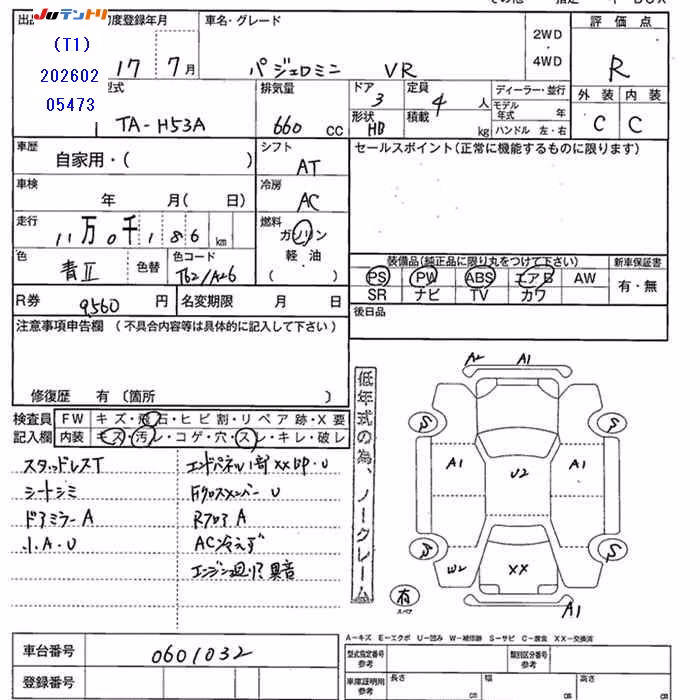 Juテントリ
(T1)
202602
05473
初度登録年月
17 7月
車名・グレード
パジェロミニ VR
2WD
・
4WD
評価点
R
外装 内装
C C
型式
TA-H53A
排気量
660 cc
ドア
3
形状
HB
定員
4 人
積載
kg
ディーラー・並行
モデル年式 年
ハンドル 左・右
車歴
自家用・( )
シフト
AT
セールスポイント(正常に機能するものに限ります)
車検
年 月( 日)
冷房
AC
走行
11万0千186 km
燃料
ガソリン
軽油
( )
色
青II
色替
色コード
T62/A26
装備品(純正品に限り丸をつけて下さい)
新車保証書
PS PW ABS エアB AW
SR ナビ TV カワ
有・無
R券
9,560 円
名変期限 月 日
後日品
注意事項申告欄 (不具合内容等は具体的に記入して下さい)
修復歴 有 〔箇所 〕
検査員
記入欄
FW キズ・飛石・ヒビ割・リペア跡・X要
内装 キズ・汚レ・コゲ・穴・スレ・キレ・破レ
スタッドレスT
シートシミ
ドアミラーA
小A・U
エンドパネル1部XX凹・U
Fクロスメンバー U
Rフロア A
AC冷えず
エンジン廻り?異音
低年式の為、ノークレーム
A2 A1
S S
A1 U2 A1
S S
W2 XX
A1
有
スペア
A-キズ E-エクボ U-凹み W-補修跡 S-サビ C-腐食 XX-交換済
車台番号
0601032
登録番号
型式指定番号
参考
類別区分番号
参考
車庫証明用
参考
長さ cm
幅 cm
高さ cm